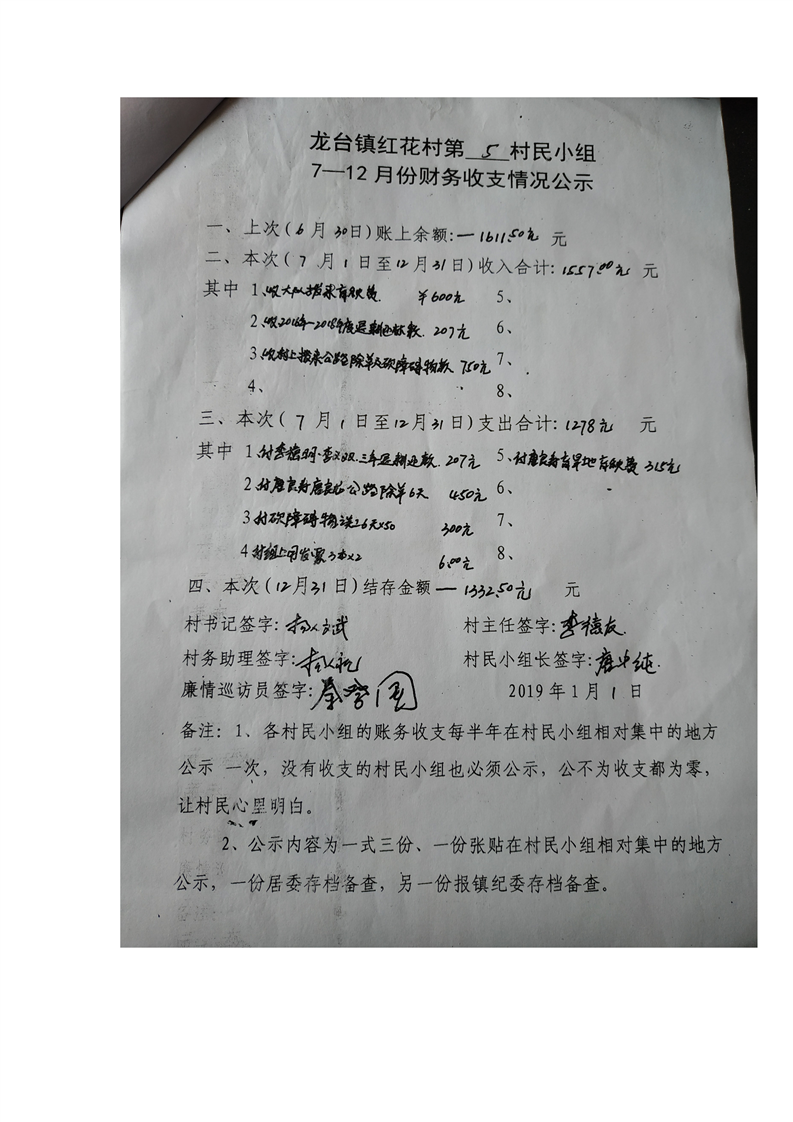 龙台镇红花村第 5 村民小组
7—12月份财务收支情况公示
一、上次(6月30日)账上余额:—1611.50元 元
二、本次(7月1日至12月31日)收入合计:1557.00元 元
其中 1、收大队拨来育秧费 ¥600元 5、
2、收2016年-2018年度退耕还林款 207元 6、
3、收村上拨来公路除草及砍障碍物款 750元 7、
4、 8、
三、本次(7月1日至12月31日)支出合计:1278元 元
其中 1、付李德明·李 三年退耕还款 207元 5、付唐 育旱地育秧费 315元
2、付唐 唐 公路除草6天 450元 6、
3 付砍障碍物 6天×50 300元 7、
4 付组上司发票3本×2 6.00元 8、
四、本次(12月31日)结存金额—1332.50元 元
村书记签字: 村主任签字:李德友
村务助理签字: 村民小组长签字:唐 纯
廉情巡访员签字:秦 国 2019年1月1日
备注:1、各村民小组的账务收支每半年在村民小组相对集中的地方
公示 一次,没有收支的村民小组也必须公示,公不为收支都为零,
让村民心里明白。
2、公示内容为一式三份、一份张贴在村民小组相对集中的地方
公示,一份居委存档备查,另一份报镇纪委存档备查。